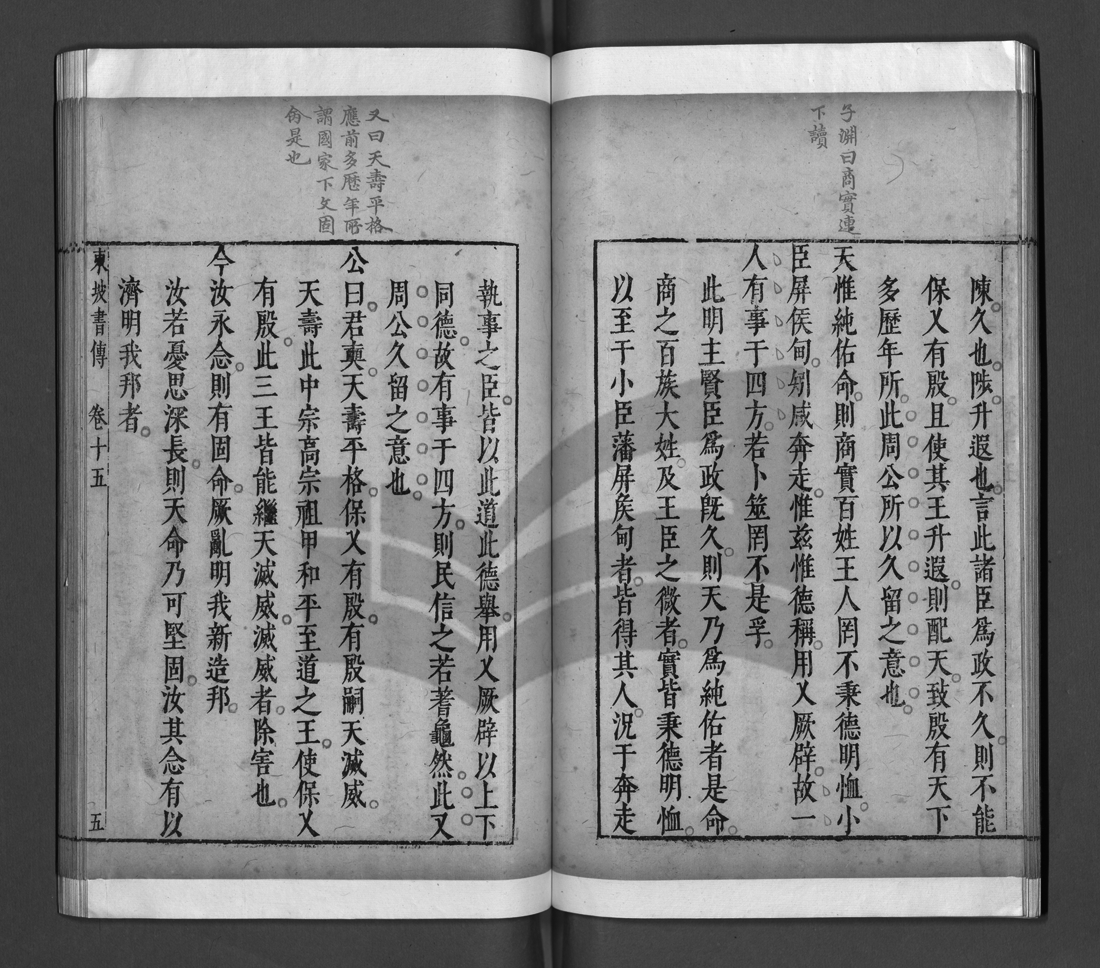 子淵曰商實連
下讀
陳久也陟升遐也言此諸臣爲政不久則不能
保乂有殷且使其王升遐則配天致殷有天下
多歷年所此周公所以久留之意也
天惟純佑命則商實百姓王人罔不秉德明恤小
臣屏侯甸矧咸奔走惟茲惟德稱用乂厥辟故一
人有事于四方若卜筮罔不是孚
此明主賢臣爲政旣久則天乃爲純佑者是命
商之百族大姓及王臣之微者實皆秉德明恤
以至于小臣藩屏矦甸者皆得其人况于奔走
又曰天壽平格
應前多歷年所
謂國家下文固
命是也
執事之臣皆以此道此德舉用乂厥辟以上下
同德故有事于四方則民信之若蓍龜然此又
周公久留之意也
公曰君奭天壽平格保乂有殷有殷嗣天滅威
天壽此中宗高宗祖甲和平至道之王使保乂
有殷此三王皆能繼天滅威滅威者除害也
今汝永念則有固命厥亂明我新造邦
汝若憂思深長則天命乃可堅固汝其念有以
濟明我邦者
東坡書傳 卷十五 五